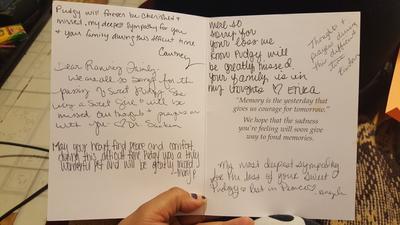 Pudgy will forever be cherished &
missed, my deepest sympathy for you
& your family during this difficult time
Courtney
Dear Ramsey Family,
We are all so sorry for the
passing of sweet Pudgy. She
was a sweet soul & will be
missed. Our thoughts & prayers are
with you ♡ Dr.
May your heart find peace and comfort
during this difficult time. Pudgy was a truly
wonderful pet and will be greatly missed.
We're so
sorry for
your loss we
know Pudgy will
be greatly missed
Your family is in
my thoughts ♡ Erica
Thoughts &
prayers during
this difficult
time
"Memory is the yesterday that
gives us courage for tomorrow."
We hope that the sadness
you're feeling will soon give
way to fond memories.
My most deepest sympathy
for the loss of your sweet
Pudgy. Rest in Peace ♡